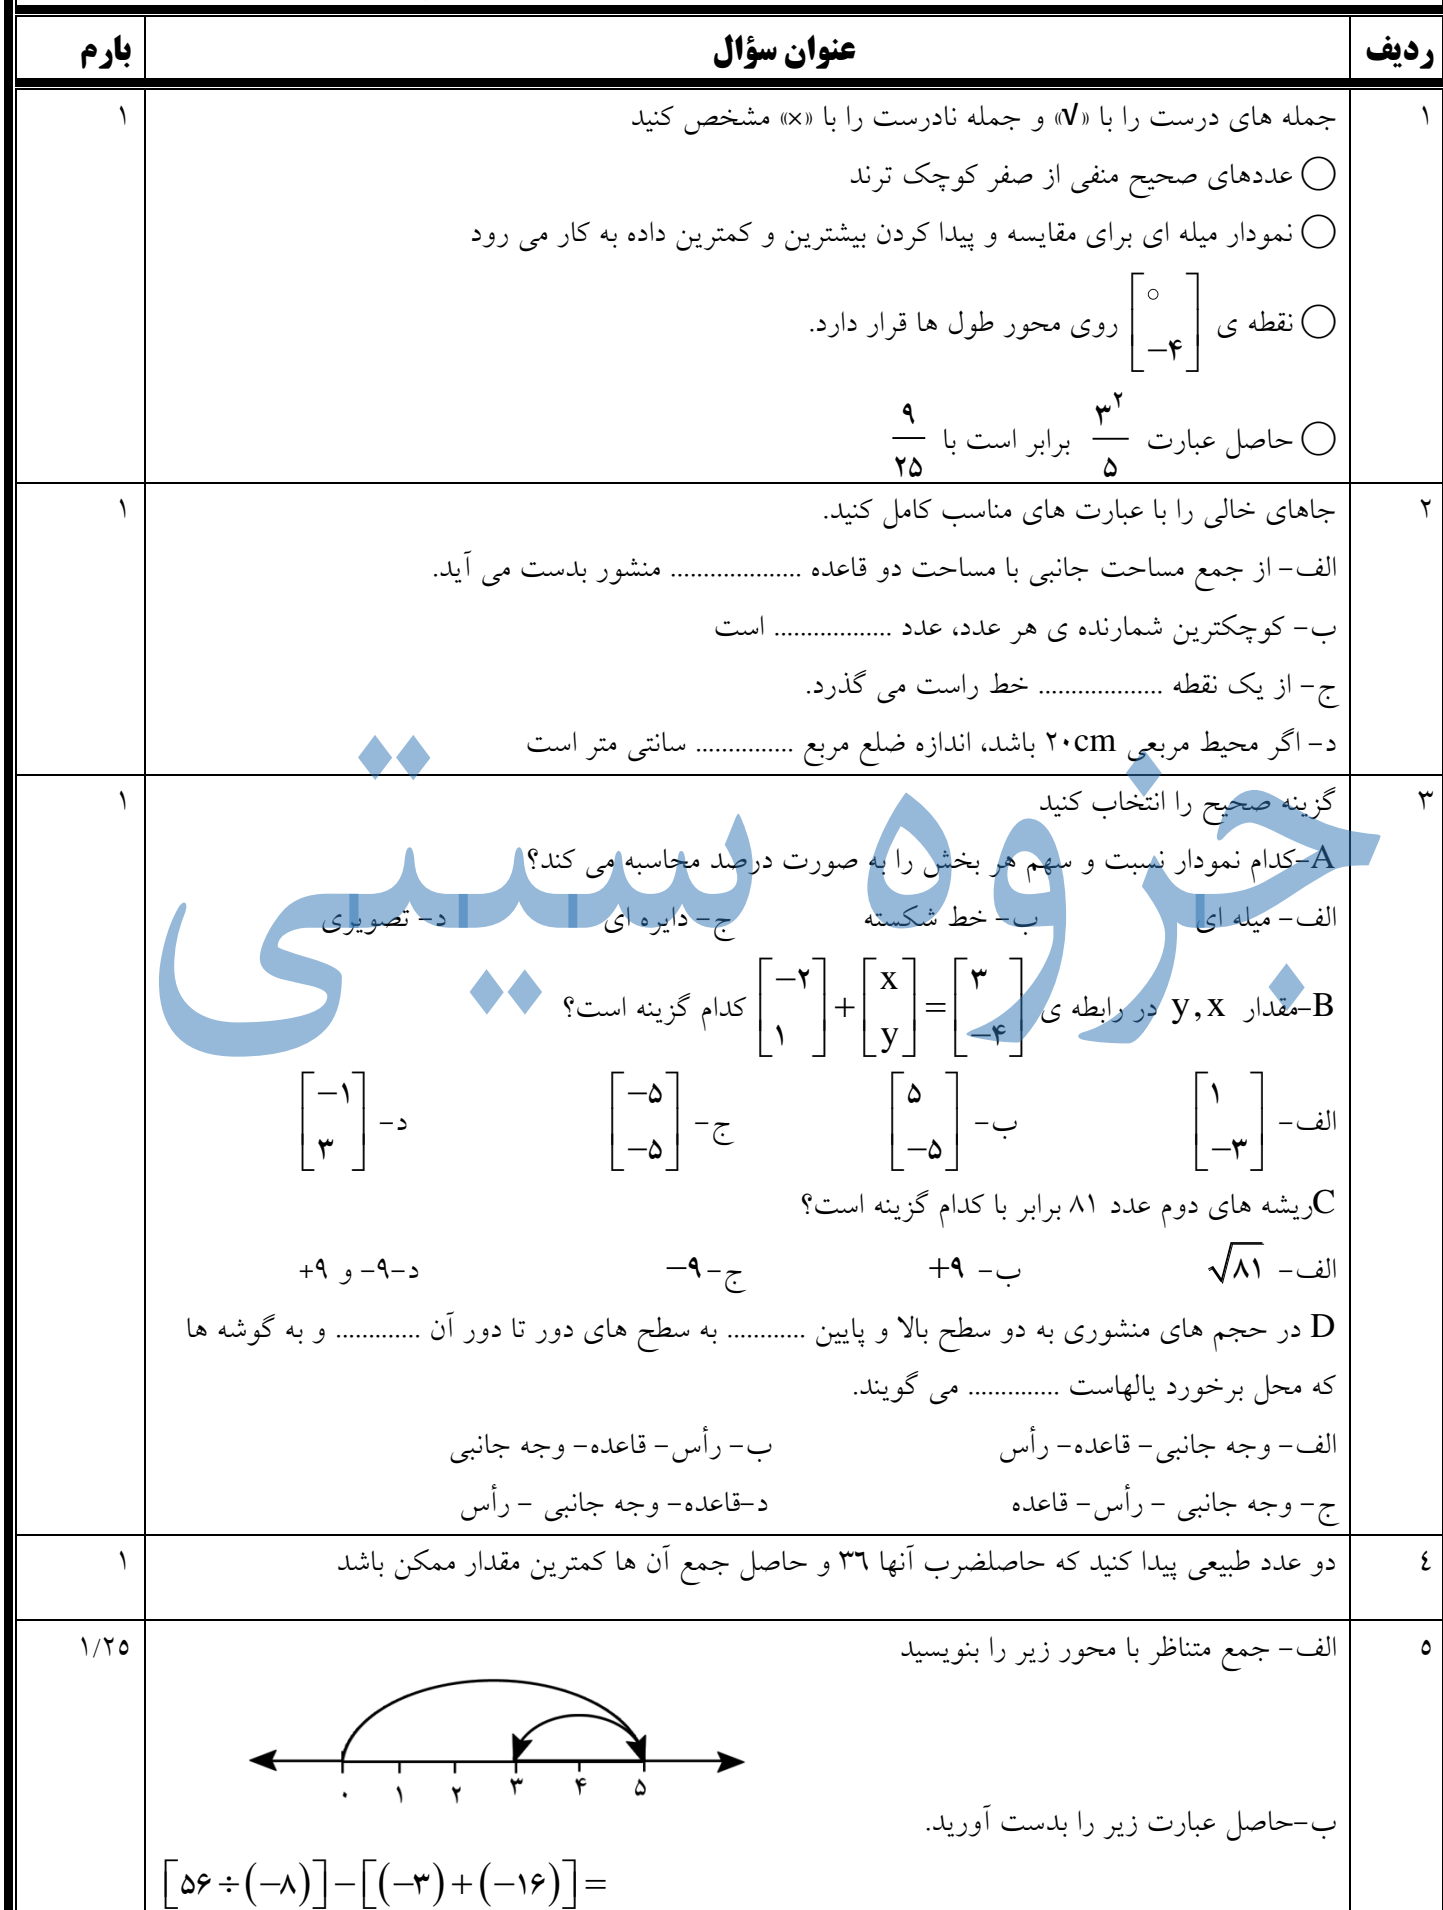 ردیف عنوان سؤال بارم
۱ جمله های درست را با «√» و جمله نادرست را با «×» مشخص کنید ۱
◯ عددهای صحیح منفی از صفر کوچک ترند
◯ نمودار میله ای برای مقایسه و پیدا کردن بیشترین و کمترین داده به کار می رود
◯ نقطه ی [۰ −۴] روی محور طول ها قرار دارد.
◯ حاصل عبارت ۳²/۵ برابر است با ۹/۲۵
۲ جاهای خالی را با عبارت های مناسب کامل کنید. ۱
الف- از جمع مساحت جانبی با مساحت دو قاعده .................... منشور بدست می آید.
ب- کوچکترین شمارنده ی هر عدد، عدد .................. است
ج- از یک نقطه ................... خط راست می گذرد.
د- اگر محیط مربعی ۲۰cm باشد، اندازه ضلع مربع ............... سانتی متر است
۳ گزینه صحیح را انتخاب کنید ۱
A-کدام نمودار نسبت و سهم هر بخش را به صورت درصد محاسبه می کند؟
الف- میله ای ب- خط شکسته ج- دایره ای د- تصویری
B-مقدار y,x در رابطه ی [−۲ ۱]+[x y]=[۳ −۴] کدام گزینه است؟
الف- [۱ −۳] ب- [۵ −۵] ج- [−۵ −۵] د- [−۱ ۳]
Cریشه های دوم عدد ۸۱ برابر با کدام گزینه است؟
الف- √۸۱ ب- +۹ ج- −۹ د-۹- و ۹+
D در حجم های منشوری به دو سطح بالا و پایین ............ به سطح های دور تا دور آن ............. و به گوشه ها
که محل برخورد یالهاست .............. می گویند.
الف- وجه جانبی- قاعده- رأس ب- رأس- قاعده- وجه جانبی
ج- وجه جانبی - رأس- قاعده د-قاعده- وجه جانبی - رأس
٤ دو عدد طبیعی پیدا کنید که حاصلضرب آنها ۳٦ و حاصل جمع آن ها کمترین مقدار ممکن باشد ۱
٥ الف- جمع متناظر با محور زیر را بنویسید ۱/۲٥
۰ ۱ ۲ ۳ ۴ ۵
ب-حاصل عبارت زیر را بدست آورید.
[۵۶÷(−۸)]−[(−۳)+(−۱۶)]=
جزوه سیتی